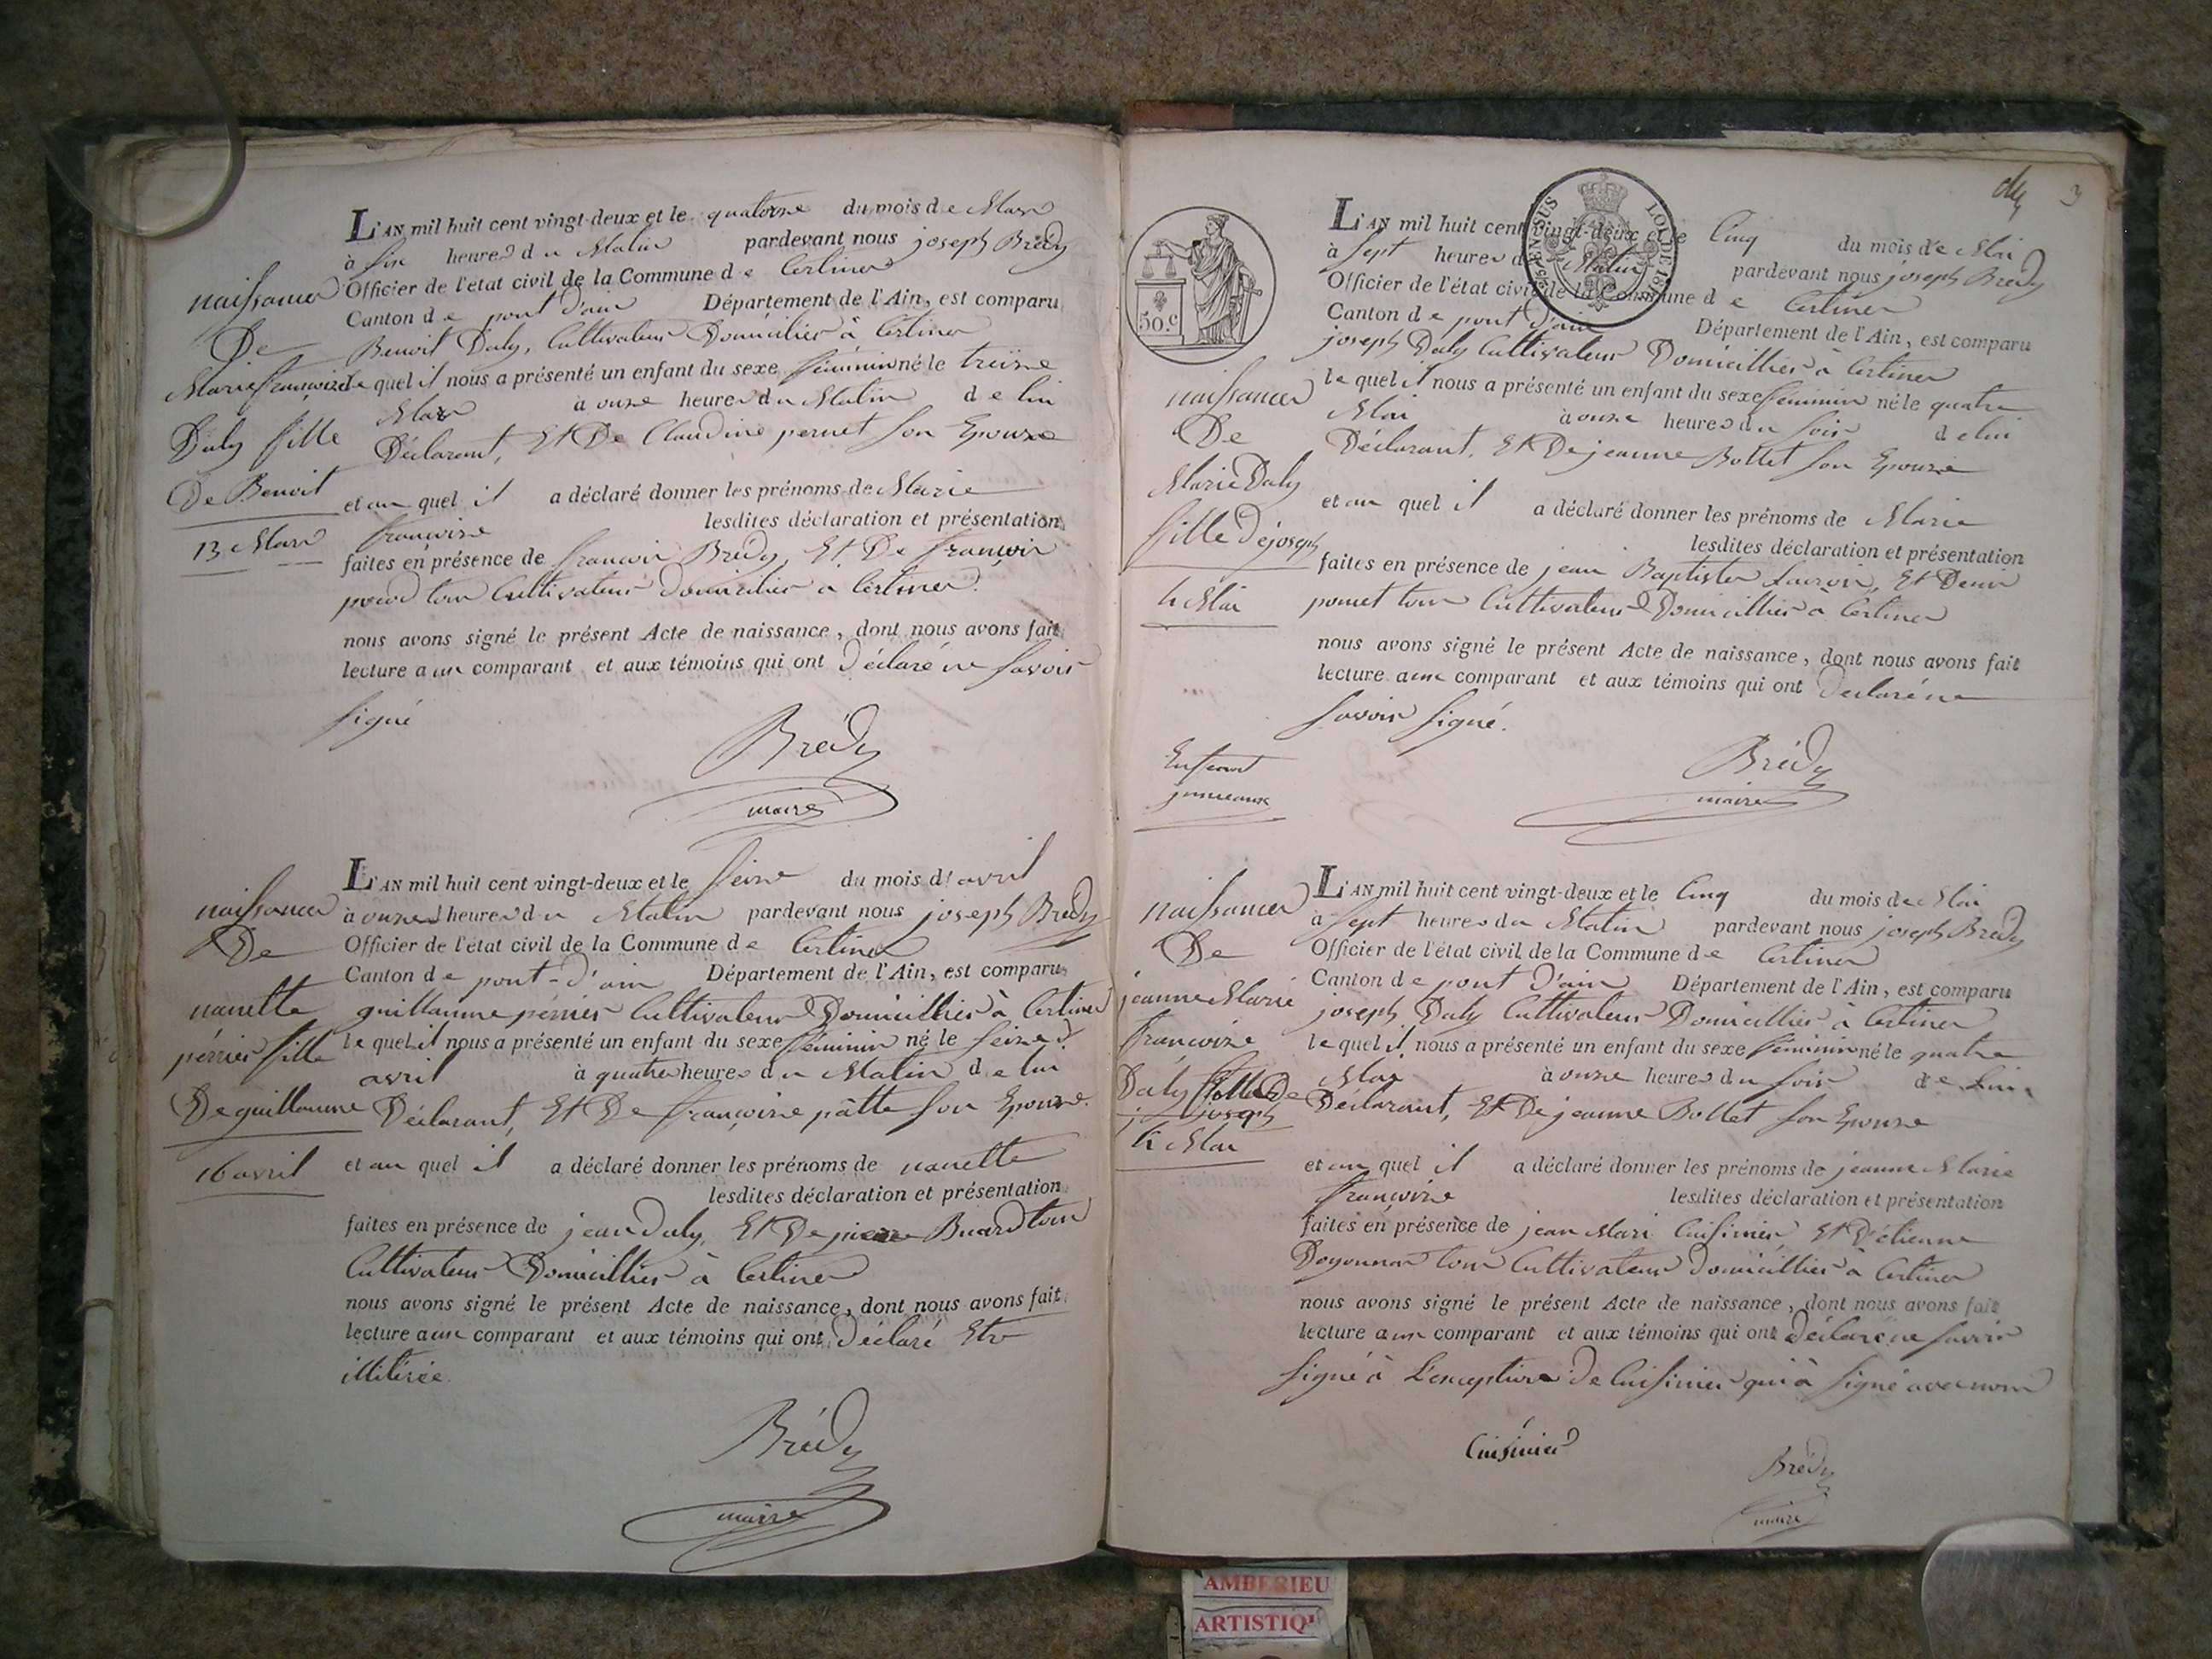 L'AN mil huit cent vingt-deux et le quatorze du mois de Mars
à six heures du Matin pardevant nous joseph Brédy
Officier de l'état civil de la Commune de Certines
Canton de pont d'ain Département de l'Ain, est comparu
Benoit Daly, Cultivateur Domicilier à Certines
le quel il nous a présenté un enfant du sexe féminin né le treisne
Mars à onze heures du Matin de lui
Déclarant, Et De Claudine pernet son Epouse
et au quel il a déclaré donner les prénoms de Marie
françoise lesdites déclaration et présentation
faites en présence de françois Brédy, Et De françois
tous Cultivateurs domicilier a Certines
nous avons signé le présent Acte de naissance, dont nous avons fait
lecture aux comparant et aux témoins qui ont Déclaré ne savoir
signé
Brédy
maire
naissance
De
Marie françoise
Daly fille
De Benoit
13 Mars
L'AN mil huit cent vingt-deux et le seize du mois d'avril
à onze heures du Matin pardevant nous joseph Brédy
Officier de l'état civil de la Commune de Certines
Canton de pont-d'ain Département de l'Ain, est comparu
guillaume périer Cultivateur Domicillier à Certines
le quel il nous a présenté un enfant du sexe féminin né le seize
avril à quatre heures du Matin de lui
Déclarant, Et De françoise pâtte son Epouse
et au quel il a déclaré donner les prénoms de nanette
lesdites déclaration et présentation
faites en présence de jean Daly, Et De pierre Buard tous
Cultivateurs Domicillier à Certines
nous avons signé le présent Acte de naissance, dont nous avons fait
lecture aux comparant et aux témoins qui ont Déclaré Etre
illitérée.
Brédy
maire
naissance
De
nanette
périer fille
De guillaume
16 avril
3
50.c
EN SUS
LOI DE 1816
L'AN mil huit cent vingt-deux et le Cinq du mois de Mai
à sept heures du Matin pardevant nous joseph Brédy
Officier de l'état civil de la Commune de Certines
Canton de pont d'ain Département de l'Ain, est comparu
joseph Daly Cultivateur Domicillier à Certines
le quel il nous a présenté un enfant du sexe féminin né le quatre
Mai à onze heures du soir de lui
Déclarant, Et De jeanne Bollet son Epouse
et au quel il a déclaré donner les prénoms de Marie
lesdites déclaration et présentation
faites en présence de jean Baptiste Lacroix, Et Denis
pomet tous Cultivateurs Domicillier à Certines
nous avons signé le présent Acte de naissance, dont nous avons fait
lecture aux comparant et aux témoins qui ont Déclaré ne
savoir signé.
Brédy
maire
naissance
De
Marie Daly
fille De joseph
4 Mai
Enfant
jumeaux
L'AN mil huit cent vingt-deux et le Cinq du mois de Mai
à sept heures du Matin pardevant nous joseph Brédy
Officier de l'état civil de la Commune de Certines
Canton de pont d'ain Département de l'Ain, est comparu
joseph Daly Cultivateur Domicillier à Certines
le quel il nous a présenté un enfant du sexe féminin né le quatre
Mai à onze heures du soir de lui
Déclarant, Et De jeanne Bollet son Epouse
et au quel il a déclaré donner les prénoms de jeanne Marie
françoise lesdites déclaration et présentation
faites en présence de jean Mari Cuisinier, Et D'étienne
Doyonnas tous Cultivateurs domicillier à Certines
nous avons signé le présent Acte de naissance, dont nous avons fait
lecture aux comparant et aux témoins qui ont Déclaré ne savoir
signé à L'exception De Cuisinier qui à signé avec nous
Cuisinier
Brédy
maire
naissance
De
jeanne Marie
françoise
Daly fille De
joseph
4 Mai
AMBERIEU
ARTISTIQ